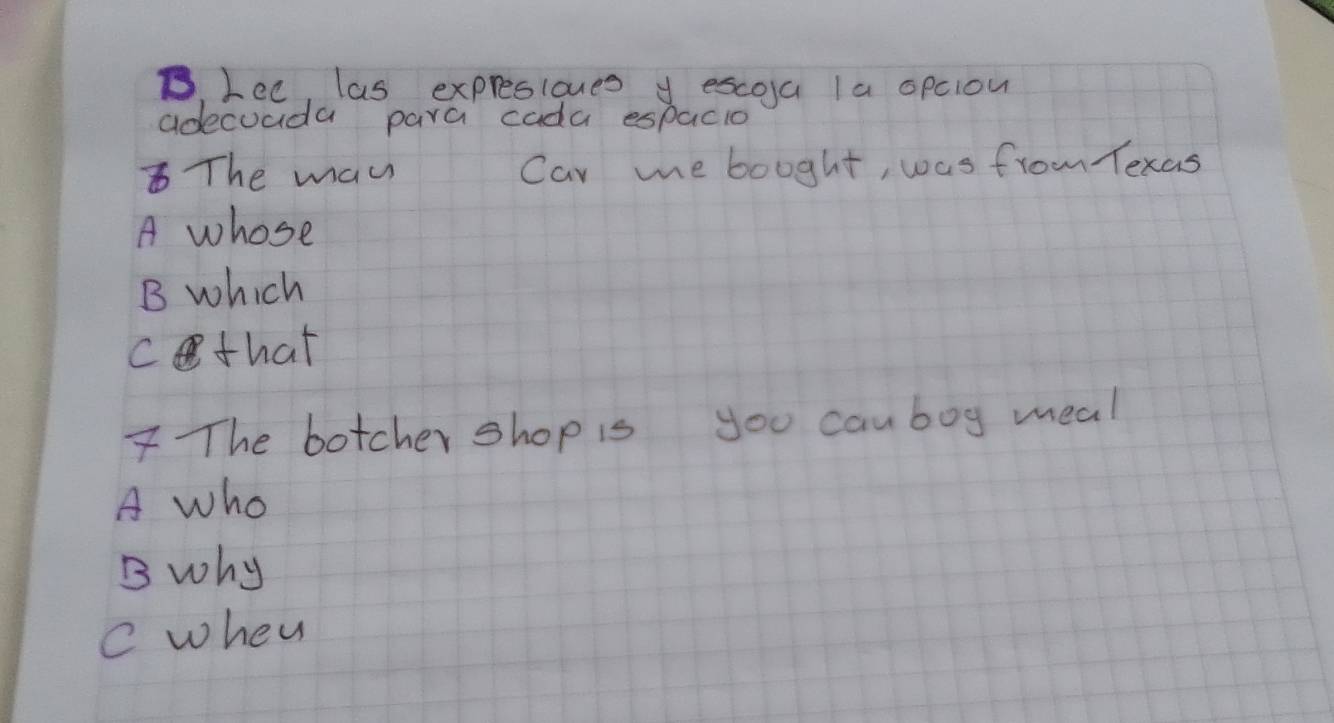 B Lee las expresiones y escoja la opcion
adecuada para cada espacio
6 The man Car me bought, was from Texas
A whose
B which
C that
7 The botcher shop is you can boy meal
A who
B why
C when